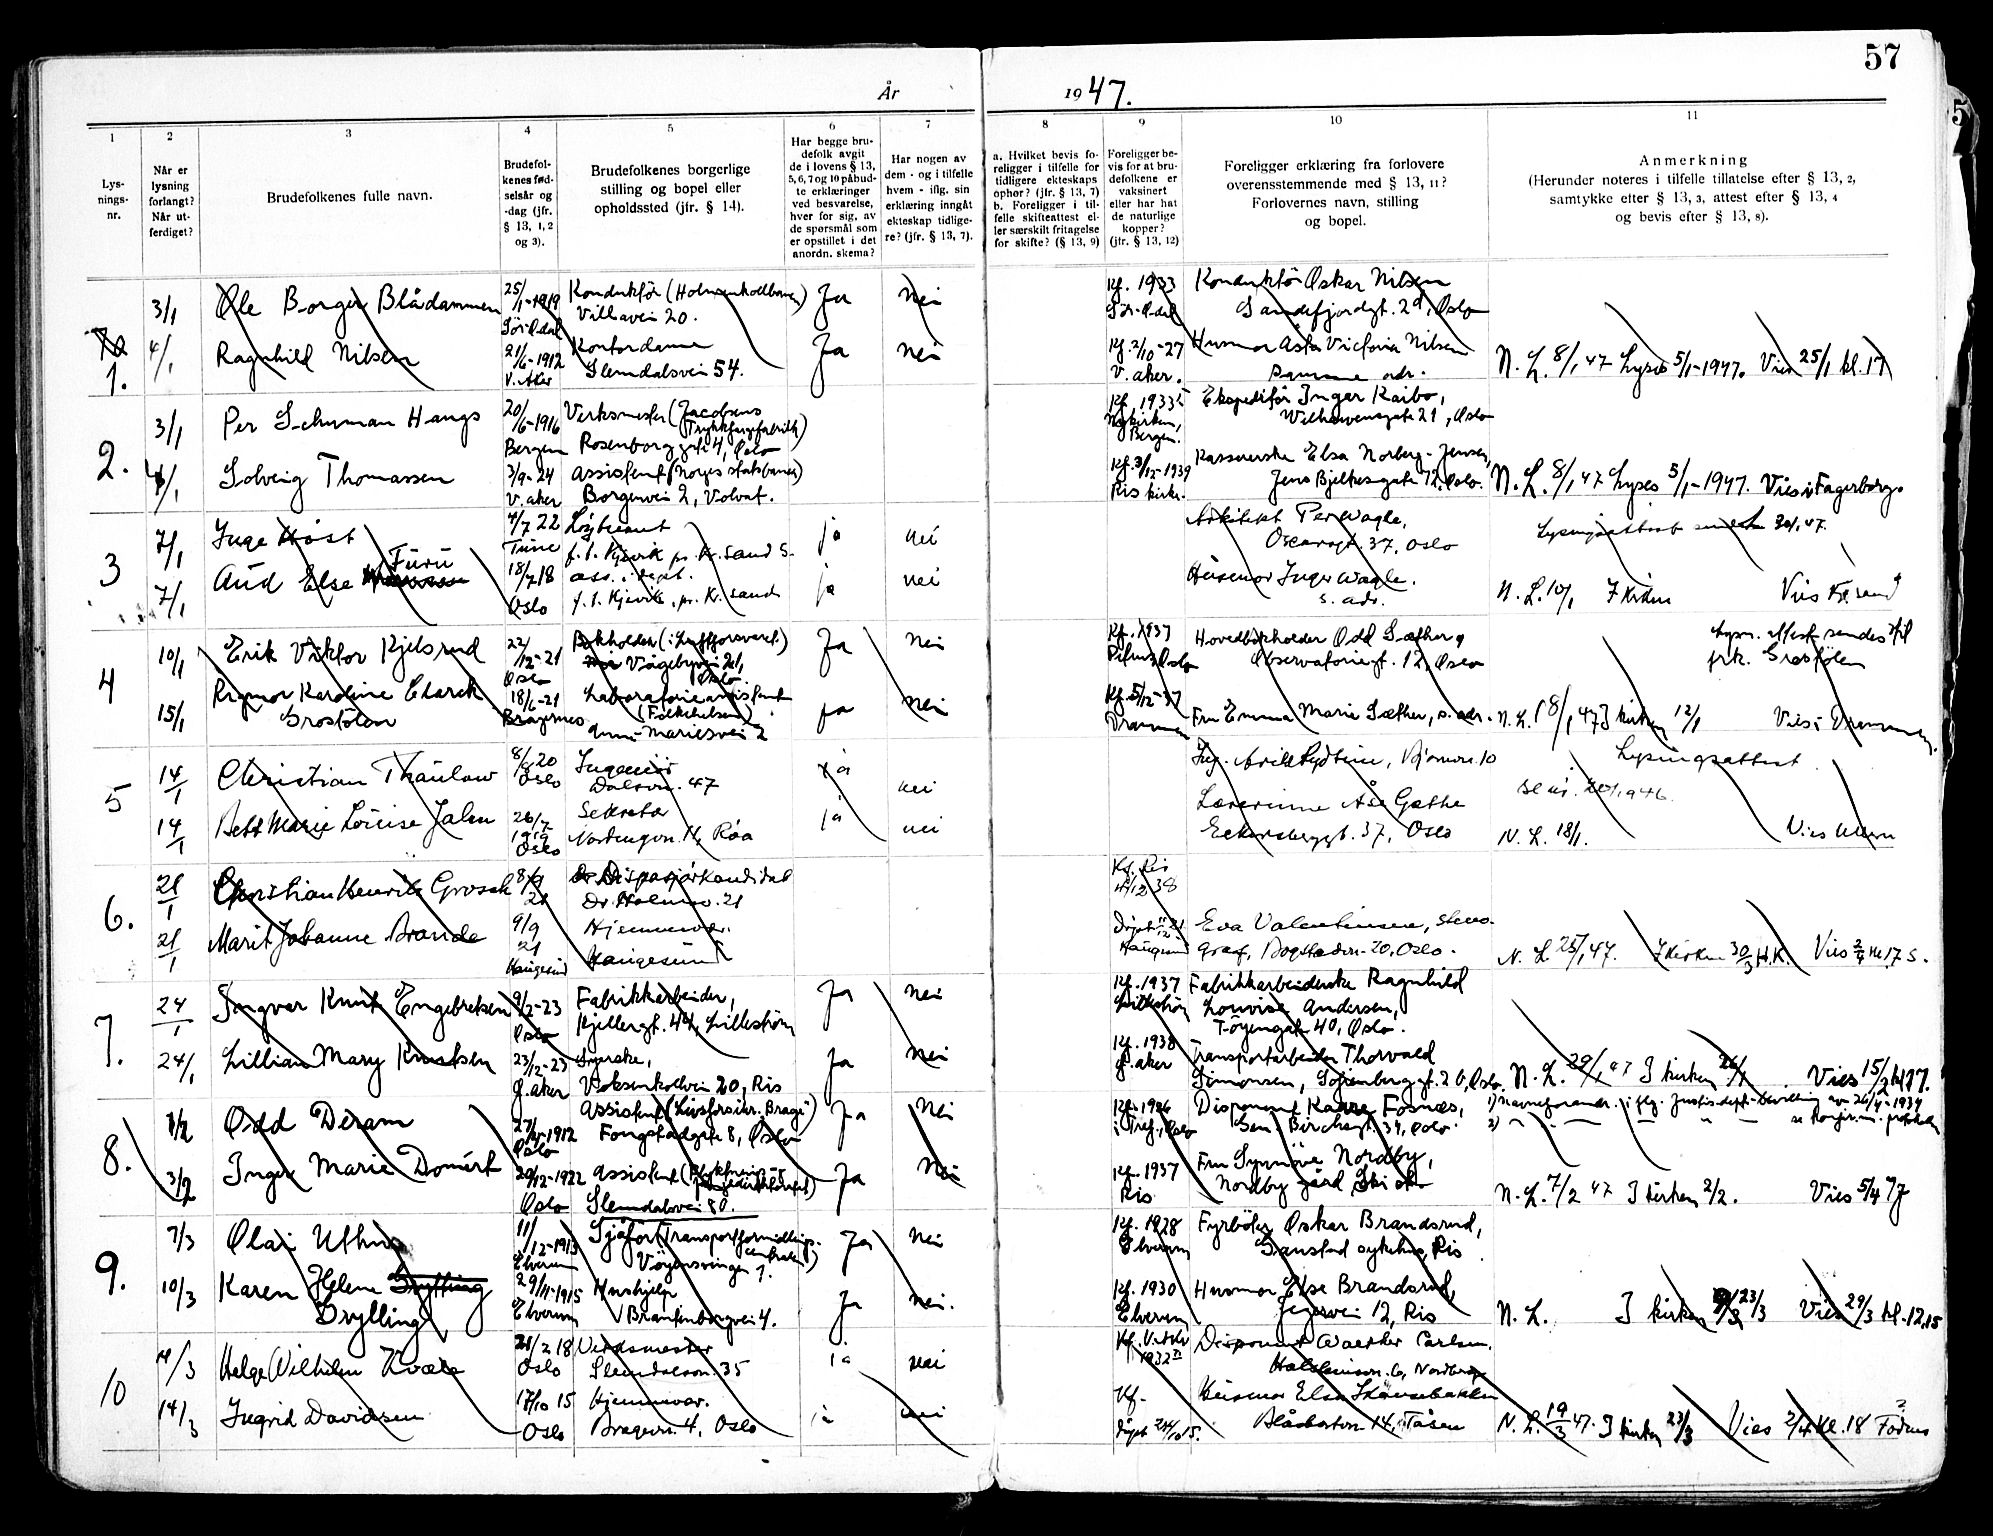 57
År
1947.
1
2
3
4
5
6
7
8
9
10
11
Lys-
nings-
nr.
Når er
lysning
forlangt?
Når ut-
ferdiget?
Brudefolkenes fulle navn.
Brudefol-
kenes fød-
selsår og
-dag (jfr.
§ 13, 1, 2
og 3).
Brudefolkenes borgerlige
stilling og bopel eller
opholdssted (jfr. § 14).
Har begge bru-
defolk avgit
de i lovens § 13,
5, 6, 7 og 10 påbud-
te erklæringer
ved besvarelse,
hver for sig, av
de spørsmål som
er opstillet i det
anordn. skema?
Har nogen av
dem - og i tilfelle
hvem - iflg. sin
erklæring inngått
ekteskap tidlige-
re? (jfr. § 13, 7).
a. Hvilket bevis fo-
religger i tilfelle for
tidligere ekteskaps
ophør? (jfr. § 13, 7)
b. Foreligger i til-
felle skifteattest el-
ler særskilt fritagelse
for skifte? (§ 13, 9)
Foreligger be-
vis for at bru-
defolkene er
vaksinert
eller har hat
de naturlige
kopper?
(jfr. § 13, 12)
Foreligger erklæring fra forlovere
overensstemmende med § 13, 11?
Forlovernes navn, stilling
og bopel.
Anmerkning
(Herunder noteres i tilfelle tillatelse efter § 13, 2,
samtykke efter § 13, 3, attest efter § 13, 4
og bevis efter § 13, 8).
1.
3/1
Ole Borger Blådammen
25/1-1919
Sør-Odal
Konduktør (Holmenkollbanen)
Villavei 20.
Ja
Nei
Kf. 1933
Sør-Odal
Konduktør Oskar Nilsen
Sandefjordgt. 2d, Oslo
4/1
Ragnhild Nilsen
21/6-1912
V. Aker
Kontordame
Slemdalsvei 54.
Ja
Nei
Kf. 2/10-27
V. aker.
Husmor Asta Victoria Nilsen
Samme adr.
N. L. 8/1 47 Lyses 5/1-1947. Vies 25/1 kl. 17
2.
3/1
Per Schuman Haugs
20/6-1916
Bergen
Verksmester (Jacobsens
Trykkfargefabrikk)
Rosenborggate 4, Oslo
Kf. 1933
Nykirken,
Bergen.
Ekspeditør Inger Kaibo,
Wilhelmsgate 21, Oslo
4/1
Solveig Thomassen
3/9-24
V. aker
Assistent (Norges statsbaner)
Borgenvei 2, Volvat.
Kf. 3/12-1939
Ris kirke.
Kasserske Elsa Norberg-Jensen,
Jens Bjelkesgate 12, Oslo.
N. L. 8/1 47 Lyses 5/1-1947. Vies i Fagerborg.
3
7/1
Inge Høst
4/7 22
Tune
Løytnant
f. t. Kjevik pr. Kr. Sand S.
ja
nei
Arkitekt Per Wagle,
Oscarsgt. 37, Oslo
Lysningsattest sendt 30/1 47.
7/1
Aud Else Furu
18/7 18
Oslo
ass. i dept.
f. t. Kjevik, pr. Kr. sand
ja
nei
Husmor Inger Wagle.
s. adr.
N. L. 10/1 I kirken Vies Kr. sand
4
10/1
Erik Viktor Kjelsrud
22/12-21
Oslo
Bokholder (i Luftforsvaret)
Vågebyvei 21,
Oslo.
Ja
Nei
Kf. 1937
Oslo
Hovedbokholder Odd Sæther,
Observatoriegt. 12, Oslo
Lysn. attest sendes til
frk. Grostølen
15/1
Rigmor Karoline Clarck
Grostølen
18/6-21
Bragernes
Laboratorieassistent
(Folkehelsen)
Anne-Mariesvei 2
ja
Nei
Kf. 5/12-37
Drammen
Fru Emma Marie Sæther, s. adr.
N. L. 18/1 47 I kirken 12/1 Vies i Drammen.
5
14/1
Christian Thaulow
8/8 20
Oslo
Ingeniør
Dalsvn. 47
ja
nei
Ing. Arild Lydtin, 10
Lysningsattest
14/1
Bett Marie Louise Jalen
26/7
1919
Oslo
Sekretær
Nordengvn. 11, Røa
ja
nei
Lærerinne Åse Gæthe
Eckersberggt. 37, Oslo
N. L. 18/1. Vies Ullern
6.
21/1
Christian Henrik Grosch
8/9
21
Dispasjørkandidat
Dr. Holmsv. 21
Kf. Ris
4/12 38
21/1
Marit Johanne Brande
9/9
21
Haugesund
Hjemmevær.
Haugesund
Døpt 11/12 21
Haugesund
Eva Valentinsen, steno-
graf, Bogstadvn. 20, Oslo.
N. L. 25/1 47. I kirken 30/3 H.K. Vies 2/4 kl 17 S.
7.
24/1
Ingvar Knut Engebretsen
9/2-23
Oslo
Fabrikkarbeider,
Kjellergt. 44, Lillestrøm
Ja
Nei
Kf. 1937
Lillestrøm
Fabrikkarbeiderske Ragnhild
Lovise Andersen,
Tøyengate 40, Oslo.
24/1
Lillian Mary Knutsen
23/12-23
Ø. aker
Syerske,
Voksenkollvei 20, Ris
Ja
Nei
Kf. 1938
Ø. aker
Transportarbeider Thorvald
Simonsen, Sofienberggt. 26, Oslo.
N. L. 29/1 47 I kirken 26/1. Vies 15/2 kl 17.
8.
1/2
Odd Deram
1912
Oslo
Assistent (Livsforsikr. Brage)
Fougstadgate 8, Oslo
Ja
Nei
Kf. 1926
i Tref., Oslo
Disponent Kaare Fosnæs,
Gen. Birchsgt. 34, Oslo.
1) Navneforandr. iflg. Justisdept. bevilling av 26/4-1934
3/2
Inger Marie Domért
20/12-1922
Oslo
Assistent
Slemdalsvei 80.
Ja
Nei
Kf. 1937
Ris
Fru Synnøve Nordby,
Nordby gård, Ski
N. L. 7/2 47 I kirken 2/2. Vies 5/4 47
9.
7/3
Olav Uthus
11/12-1913
Elverum
Sjåfør (Transportformidlings-
sentralen)
Vøyensvingen 7.
Ja
Nei
Kf. 1928
Elverum
Fyrbøter Oskar Brandsrud,
Gaustad sykehus, Ris
10/3
Karen Helene
Drylling
29/11-1915
Elverum
Hushjelp
Brantenborgvei 4.
Ja
Nei.
Kf. 1930
Elverum
Husmor Else Brandsrud,
Jegervei 12, Ris
N. L. I kirken 23/3 Vies 29/3 kl. 12,15
10
14/3
Helge Wilhelm Kvæle
21/2 18
Oslo
Verksmester
Slemdalsvn. 35
ja
nei
Kf. V. Aker
1932
Disponent Walther Carlsen.
Holsteinsvn. 6, Nordberg
14/3
Ingrid Davidsen
17/10 15
Oslo
Hjemmevær.
Bragevn. 4, Oslo
ja
nei
Kf-
døpt 24/10 15.
Husmor Elsa Skansebakken
Blåsbortvn. 14, Tåsen
N. L. 19/3 47. I kirken 23/3 Vies 2/4 kl. 18